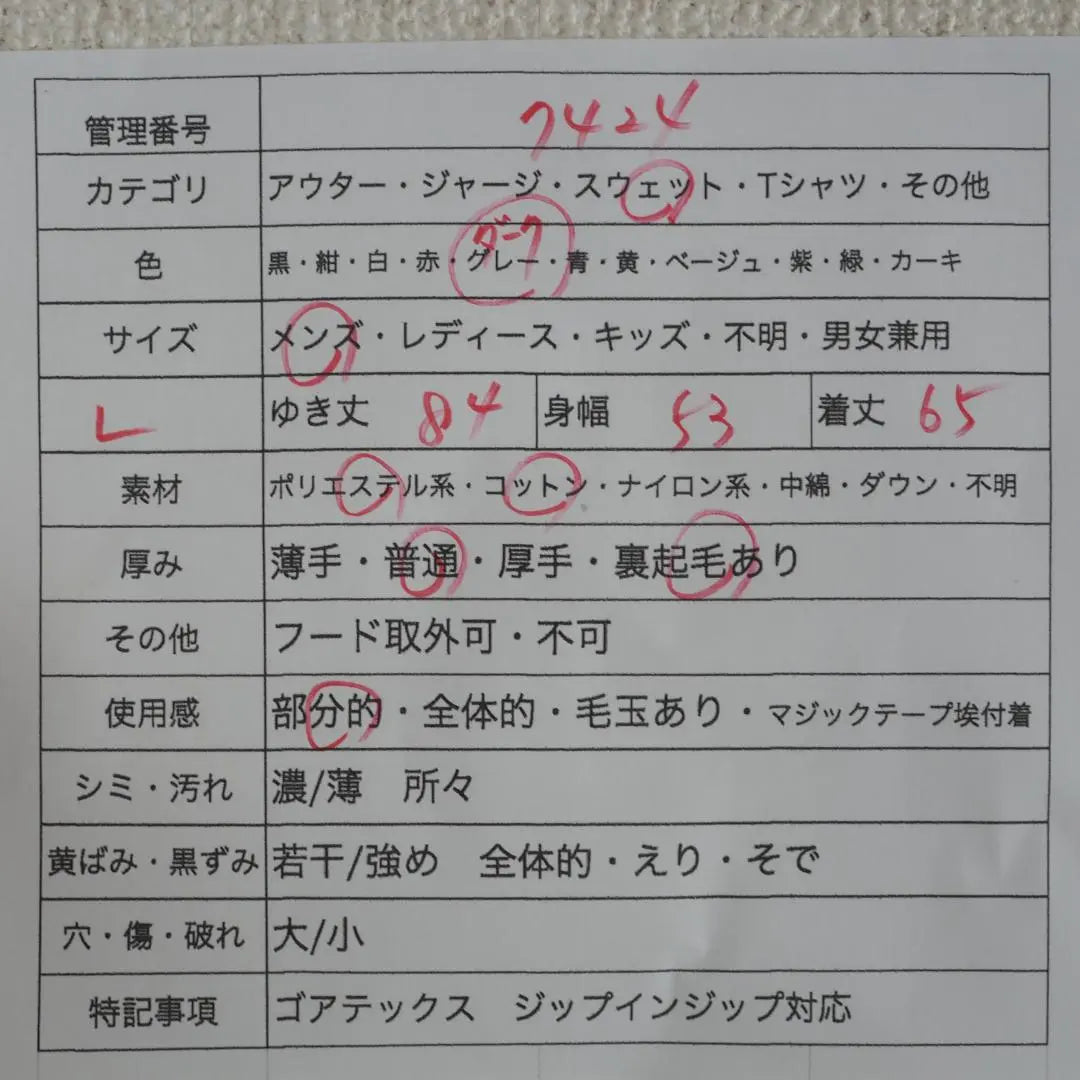 管理番号 7424
カテゴリ アウター・ジャージ・スウェット・Tシャツ・その他
ダーク
色 黒・紺・白・赤・グレー・青・黄・ベージュ・紫・緑・カーキ
サイズ メンズ・レディース・キッズ・不明・男女兼用
L ゆき丈 84 身幅 53 着丈 65
素材 ポリエステル系・コットン・ナイロン系・中綿・ダウン・不明
厚み 薄手・普通・厚手・裏起毛あり
その他 フード取外可・不可
使用感 部分的・全体的・毛玉あり・マジックテープ埃付着
シミ・汚れ 濃/薄 所々
黄ばみ・黒ずみ 若干/強め 全体的・えり・そで
穴・傷・破れ 大/小
特記事項 ゴアテックス ジップインジップ対応